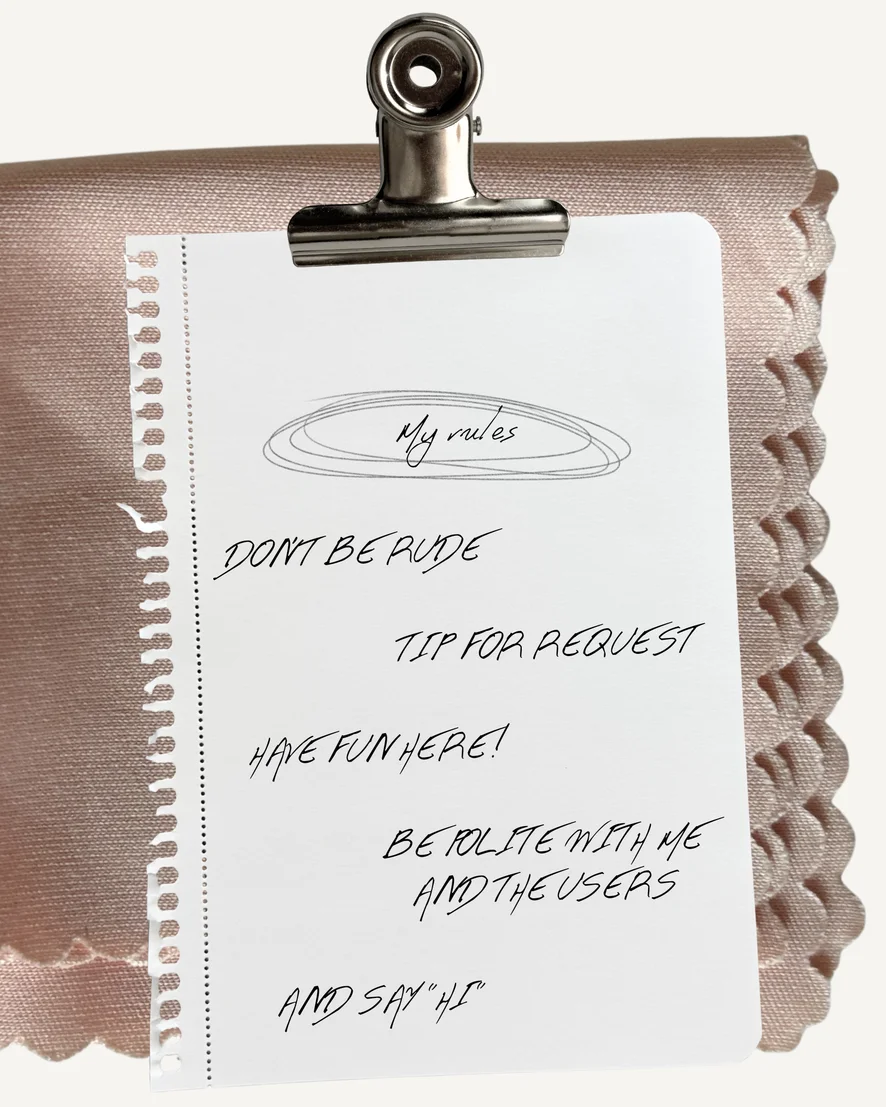 My rules
DON'T BE RUDE
TIP FOR REQUEST
HAVE FUN HERE!
BE POLITE WITH ME
AND THE USERS
AND SAY "HI"